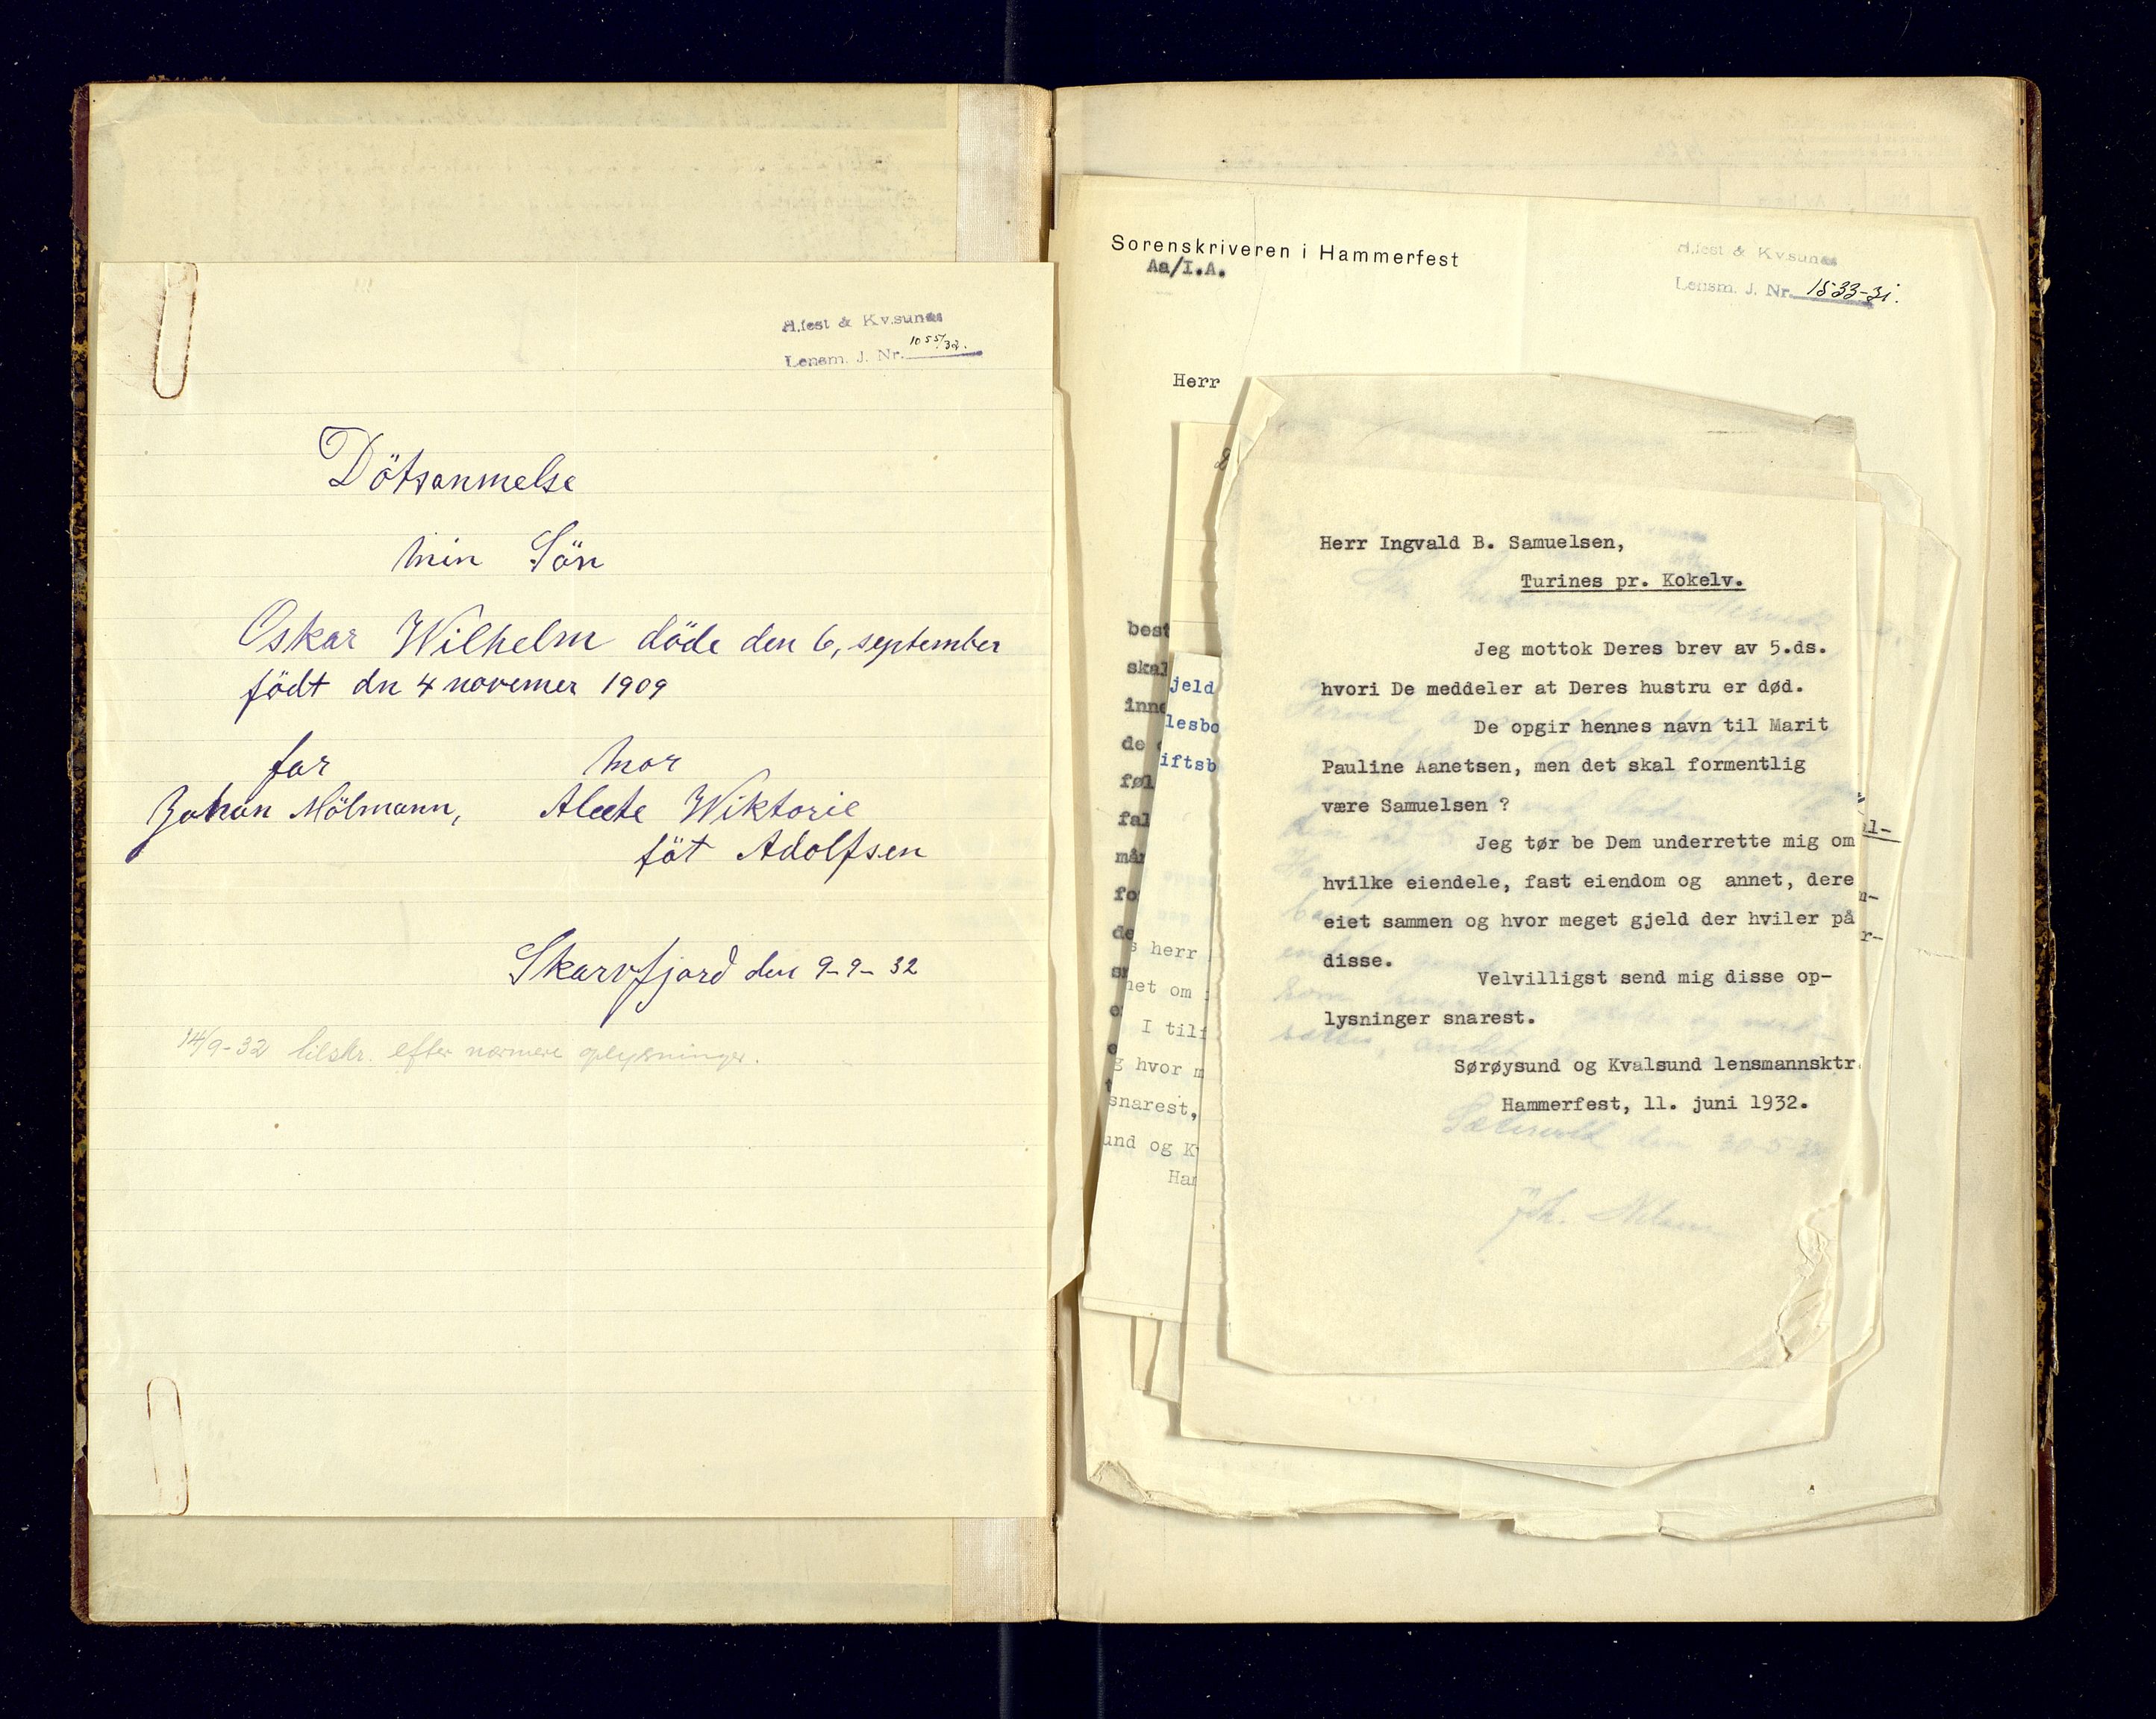 H.fest & Kv.sunds
Lensm. J. Nr. 1055/32.
Dötsanmelse
min Sön
Oskar Wilhelm döde den 6, september
födt dn 4 novemer 1909
far mor
Johan Mölmann, Aleete Wiktorie
föt Adolfsen
Skarvfjord den 9-9-32
14/9-32 tilskr. efter nærmere oplysninger.
Sorenskriveren i Hammerfest
Aa/I.A.
H.fest & Kv.sunds
Lensm. J. Nr. 1533-31.
Herr
best
skal
inne
de
føl
fal
mån
fo
de
jeld
lesbo
iftsb
s herr
het om
I tilf
g hvor m
snarest,
und og K
Ham
Herr Ingvald B. Samuelsen,
Turines pr. Kokelv.
Jeg mottok Deres brev av 5.ds.
hvori De meddeler at Deres hustru er død.
De opgir hennes navn til Marit
Pauline Aanetsen, men det skal formentlig
være Samuelsen ?
Jeg tør be Dem underrette mig om
hvilke eiendele, fast eiendom og annet, dere
eiet sammen og hvor meget gjeld der hviler på
disse.
Velvilligst send mig disse op-
lysninger snarest.
Sørøysund og Kvalsund lensmannsktr.
Hammerfest, 11. juni 1932.
den 30-5-32
Joh. Nilsen